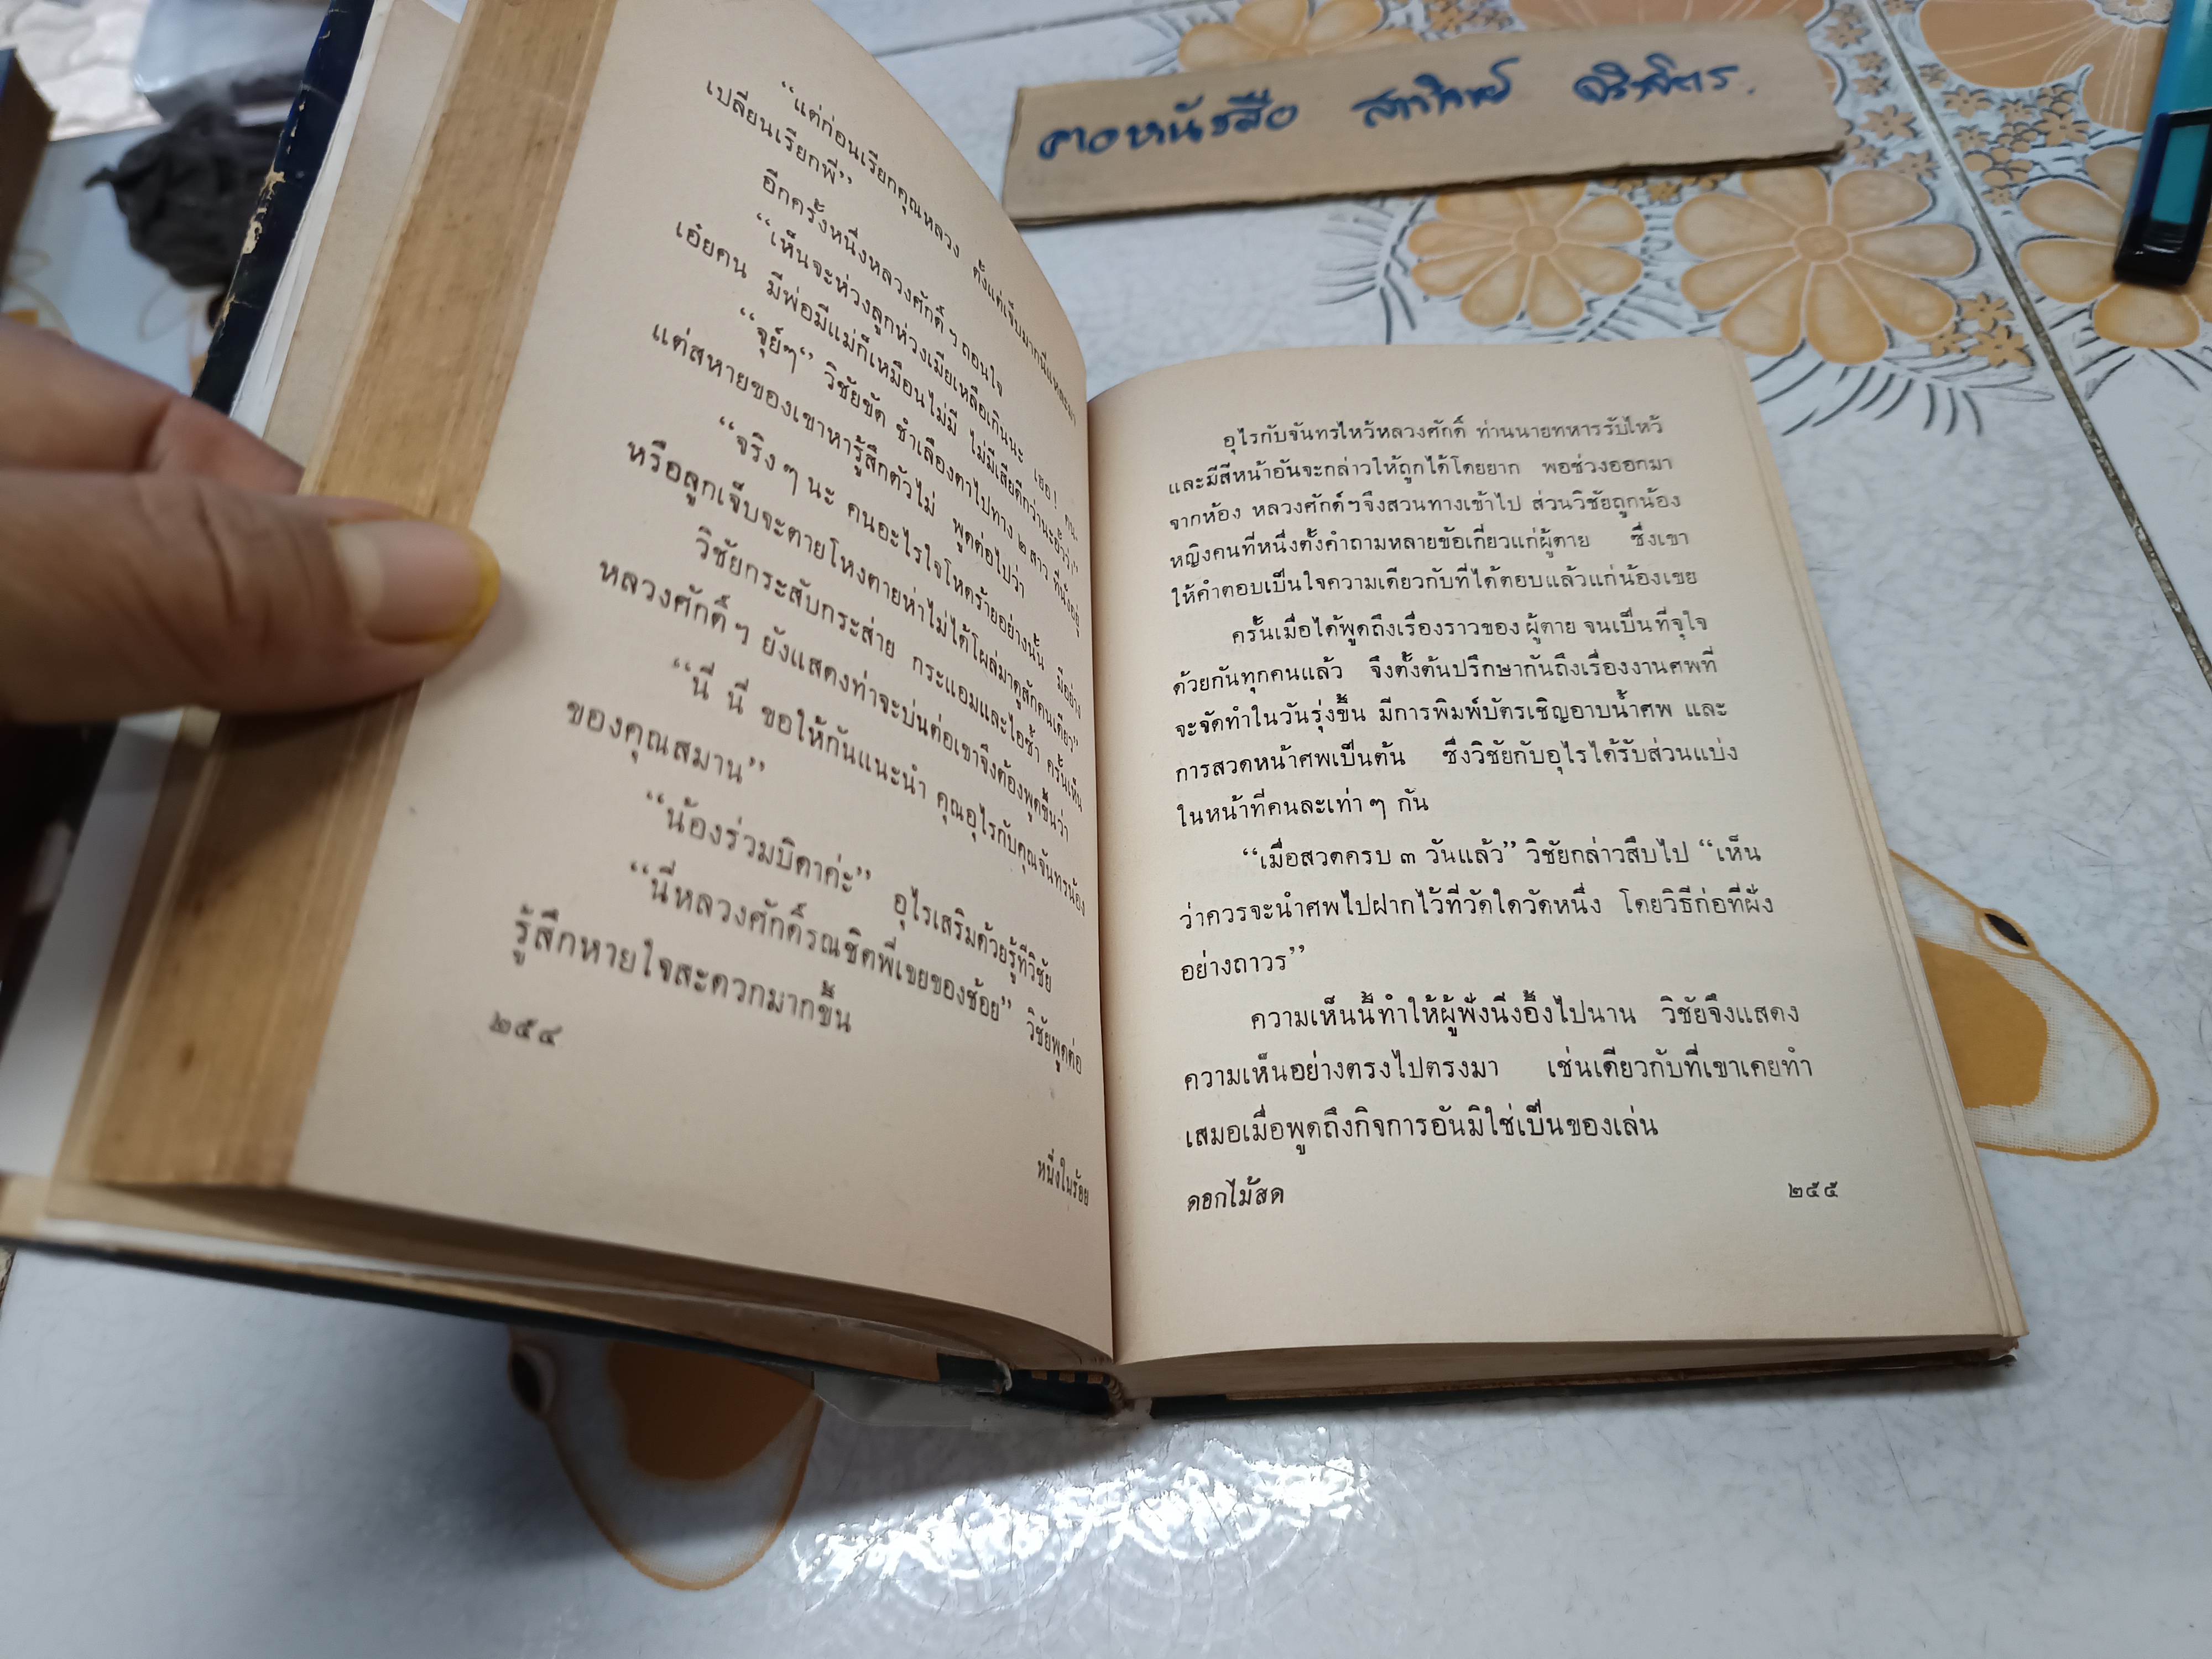 “แต่ก่อนเรียกคุณหลวง ตั้งแต่เจ็บมากนี่แหละมา
เปลี่ยนเรียกพี่”
อีกครั้งหนึ่งหลวงศักดิ์ ฯ ถอนใจ
“เห็นจะห่วงลูกห่วงเมียเหลือเกินนะ เธอ! คน
เอ๋ยคน มีพ่อมีแม่ก็เหมือนไม่มี ไม่มีเสียดีกว่านะยั้วว่ะ”
“จุย์ๆ” วิชัยขัด ชำเลืองตาไปทาง ๒ สาว ที่นั่งอยู่
แต่สหายของเขาหารู้สึกตัวไม่ พูดต่อไปว่า
“จริง ๆ นะ คนอะไรใจโหดร้ายอย่างนั้น มีอย่าง
หรือลูกเจ็บจะตายโหงตายห่าไม่ได้โผล่มาดูสักคนเดียว”
วิชัยกระสับกระส่าย กระแอมและไอซ้ำ ครั้นเห็น
หลวงศักดิ์ ฯ ยังแสดงท่าจะบ่นต่อเขาจึงต้องพูดขึ้นว่า
“นี่ นี่ ขอให้กันแนะนำ คุณอุไรกับคุณจันทรน้อง
ของคุณสมาน”
“น้องร่วมบิดาค่ะ” อุไรเสริมด้วยรู้ทีวิชัย
“นี่หลวงศักดิ์รณชิตพี่เขยของช้อย” วิชัยพูดต่อ
รู้สึกหายใจสะดวกมากขึ้น
๒๕๔
หนึ่งในร้อย
คาวหนังสือ
อุไรกับจันทรไหว้หลวงศักดิ์ ท่านนายทหารรับไหว้
และมีสีหน้าอันจะกล่าวให้ถูกได้โดยยาก พอช่วงออกมา
จากห้อง หลวงศักดิ์ ฯ จึงสวนทางเข้าไป ส่วนวิชัยถูกน้อง
หญิงคนที่หนึ่งตั้งคำถามหลายข้อเกี่ยวแก่ผู้ตาย ซึ่งเขา
ให้คำตอบเป็นใจความเดียวกับที่ได้ตอบแล้วแก่น้องเขย
ครั้นเมื่อได้พูดถึงเรื่องราวของผู้ตาย จนเป็นที่จุใจ
ด้วยกันทุกคนแล้ว จึงตั้งต้นปรึกษากันถึงเรื่องงานศพที่
จะจัดทำในวันรุ่งขึ้น มีการพิมพ์บัตรเชิญอาบน้ำศพ และ
การสวดหน้าศพเป็นต้น ซึ่งวิชัยกับอุไรได้รับส่วนแบ่ง
ในหน้าที่คนละเท่า ๆ กัน
“เมื่อสวดครบ ๓ วันแล้ว” วิชัยกล่าวสืบไป “เห็น
ว่าควรจะนำศพไปฝากไว้ที่วัดใดวัดหนึ่ง โดยวิธีก่อที่ฝัง
อย่างถาวร”
ความเห็นนี้ทำให้ผู้ฟังนิ่งอึ้งไปนาน วิชัยจึงแสดง
ความเห็นอย่างตรงไปตรงมา เช่นเดียวกับที่เขาเคยทำ
เสมอเมื่อพูดถึงกิจการอันมิใช่เป็นของเล่น
ดอกไม้สด
๒๕๕